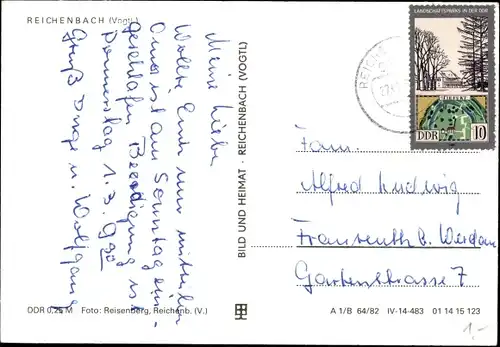 REICHENBACH (Vogtl.)
Meine Lieben
Wollte Euch nur mitteilen
Oma ist am Sonntag ein-
geschlafen. Beerdigung ist
Donnerstag 1.3. 9 30
Gruß Inge u. Wolfgang
DDR 0,25 M Foto: Reisenberg, Reichenb. (V.)
BILD UND HEIMAT · REICHENBACH (VOGTL)
REICHE
LANDSCHAFTSPARKS IN DER DDR
TIEFURT
DDR 10
Fam.
Alfred Ludwig
Fraureuth b. Werdau
Gartenstrasse 7
A 1/B 64/82 IV-14-483 01 14 15 123
1,-